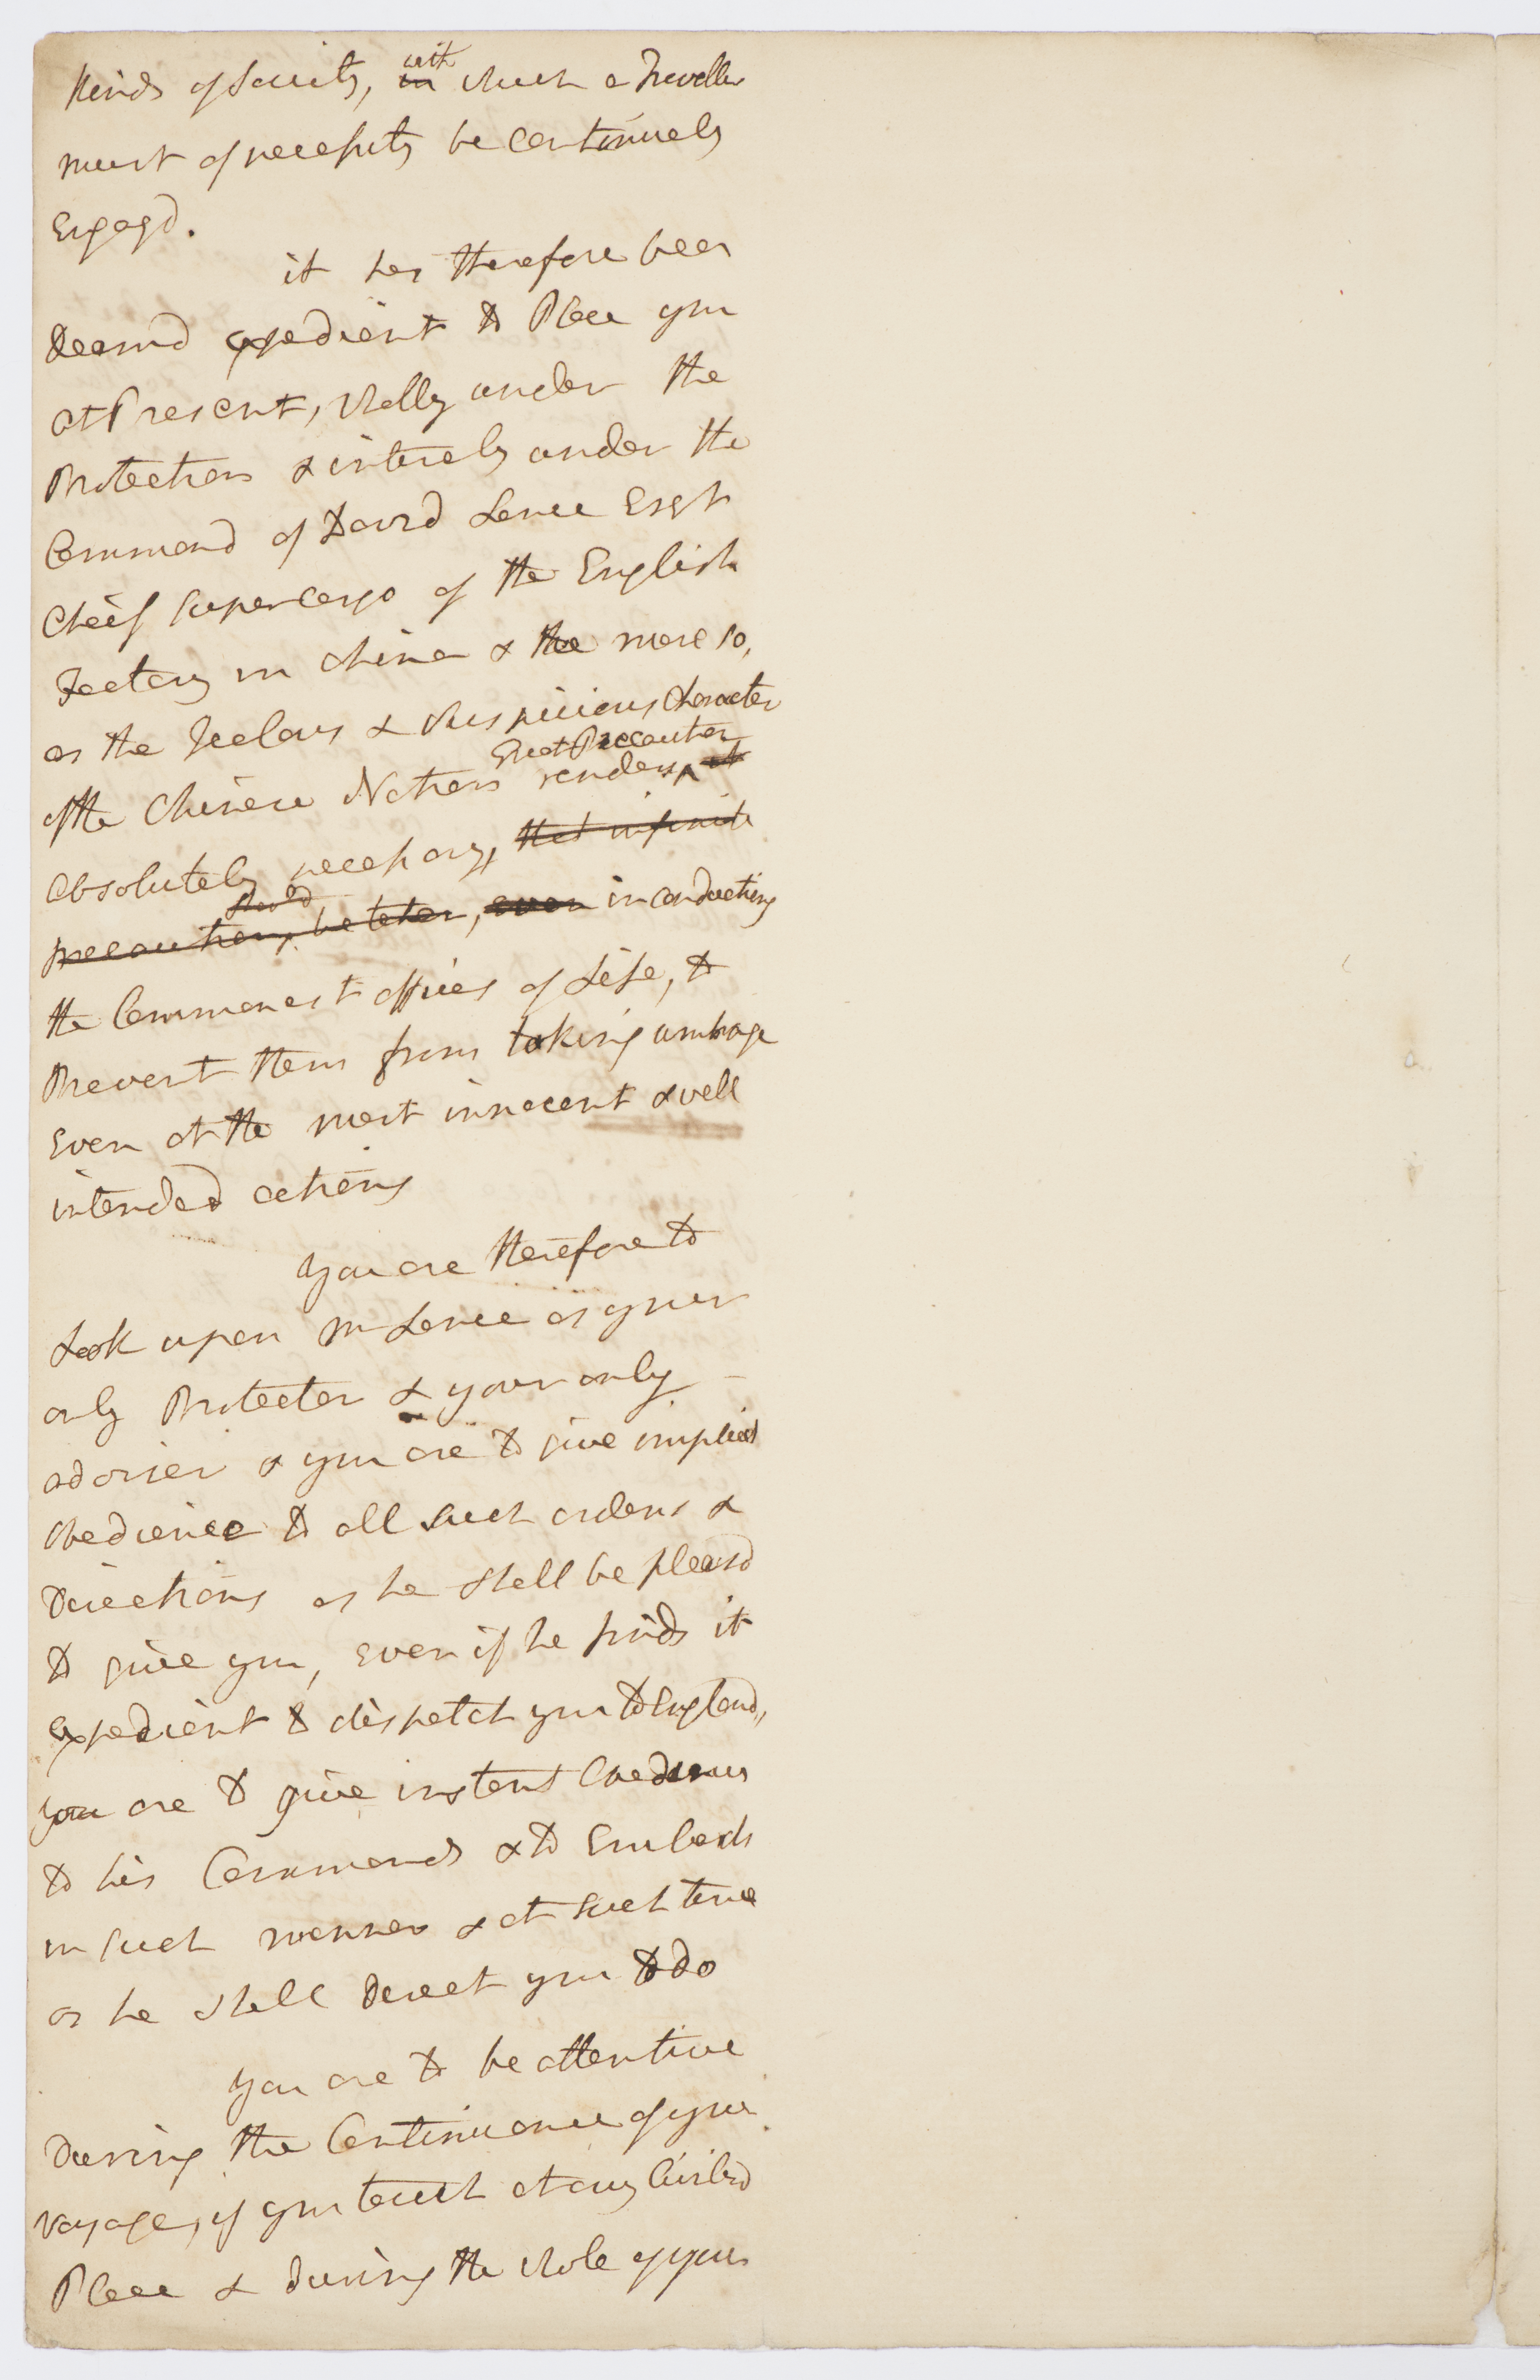 kinds of Society, in with which a Traveller
must of necessity be Continualy
Engagd.
it has therefore been
deemd expedient to Place you
at Present, wholly under the
Protection & intirely under the
Command of David Lance Esqr
Cheif Supercargo of the English
Factory in China & the more so,
as the Jealous & Suspicious Character
of the Chinese Nation renders Great Precaution it
absolutely necessary, that infinite
precautions should be taken, even in conducting
the Commonest offices of Life, to
Prevent them from taking umbrage
Even at the most innocent & well
intended actions
you are therefore to
Look upon Mr Lance as your
only Protector & your only
adviser & you are to give implicit
obedience to all such orders &
Directions as he shall be pleasd
to give you, Even if he finds it
Expedient to dispatch you to England,
you are to give instant Obedience
to his Commands & to Embark
in such manner & at such time
as he shall direct you to do
you are to be attentive
During the Continuance of your
voyage, if you touch at any Civilizd
Place & during the whole of your